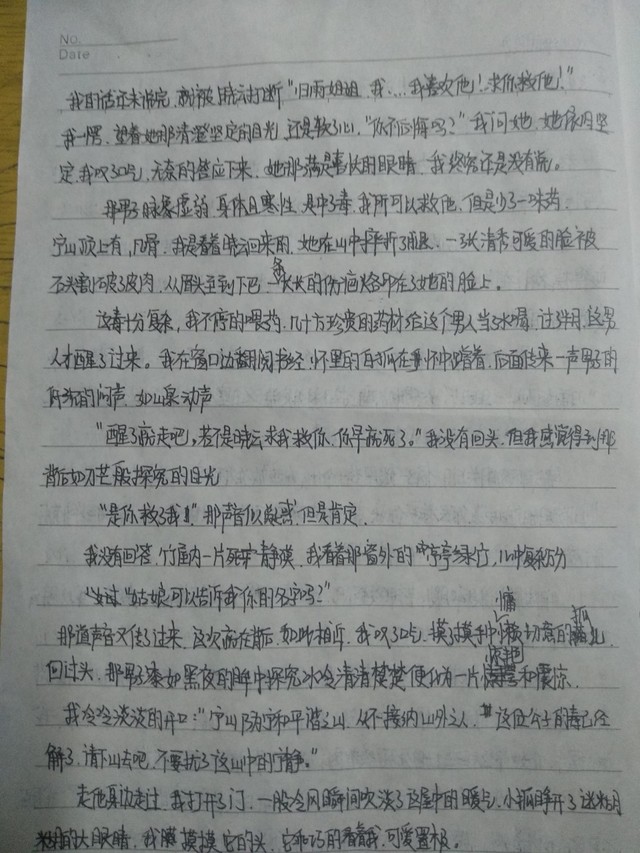 No.
Date
我的话还未说完,就被晓云打断"归雨姐姐,我....我喜欢他!求你救他!"
我一愣,望着她那清澄坚定的目光,还是软了心,"你不后悔吗?"我问她,她依旧坚
定,我叹口气,无奈的答应下来,她那满是喜悦的眼睛,我终究还是没有说。
那男子脉象虚弱,身体且寒性,是中了毒,我所可以救他,但是少了一味药,
宁山顶上有,凡骨,我是看着晓云回来的,她在山中摔折了腿,一张清秀可爱的脸被
石头割破了皮肉,从眉头至到下巴,条长长的伤疤烙印在了她的脸上。
这毒十分复杂,我不停的喂药,几十方珍贵的药材给这个男人当了水喝,过半月,这男
人才醒了过来。我在窗口边翻阅书经,怀里的白狐在怀中蹭着,后面传来一声男子的
低沉的问声,如山泉动声
"醒了就走吧,若不是晓云求我救你,你早就死了。"我没有回头,但我感觉得到那
背后如刀芒般探究的目光
"是你救了我!"那声音似疑惑,但是肯定,
我没有回答,竹屋内一片死寂静漠,我看着那窗外的亭亭绿竹,心中复杂万分
"姑娘可以告诉我你的名字吗?"
那道声音又传了过来,这次就在背后,如此相近,我叹口气,摸了摸手中慵懒切意的狐
回过头,那男子漆如黑夜的眸中探究冰冷清清楚楚,便化为一片和震惊,
我冷冷淡淡的开口:"宁山,乃宁和平谐之山,从不接纳山外之人,这位公子的毒已经
解了,请下山去吧,不要扰了这山中的宁静。"
走他身边走过,我打开了门,一股冷风瞬间吹淡了这屋中的暖气,小狐睁开了迷
的大眼睛,我摸摸它的头,它乖巧的看着我,可爱至极。